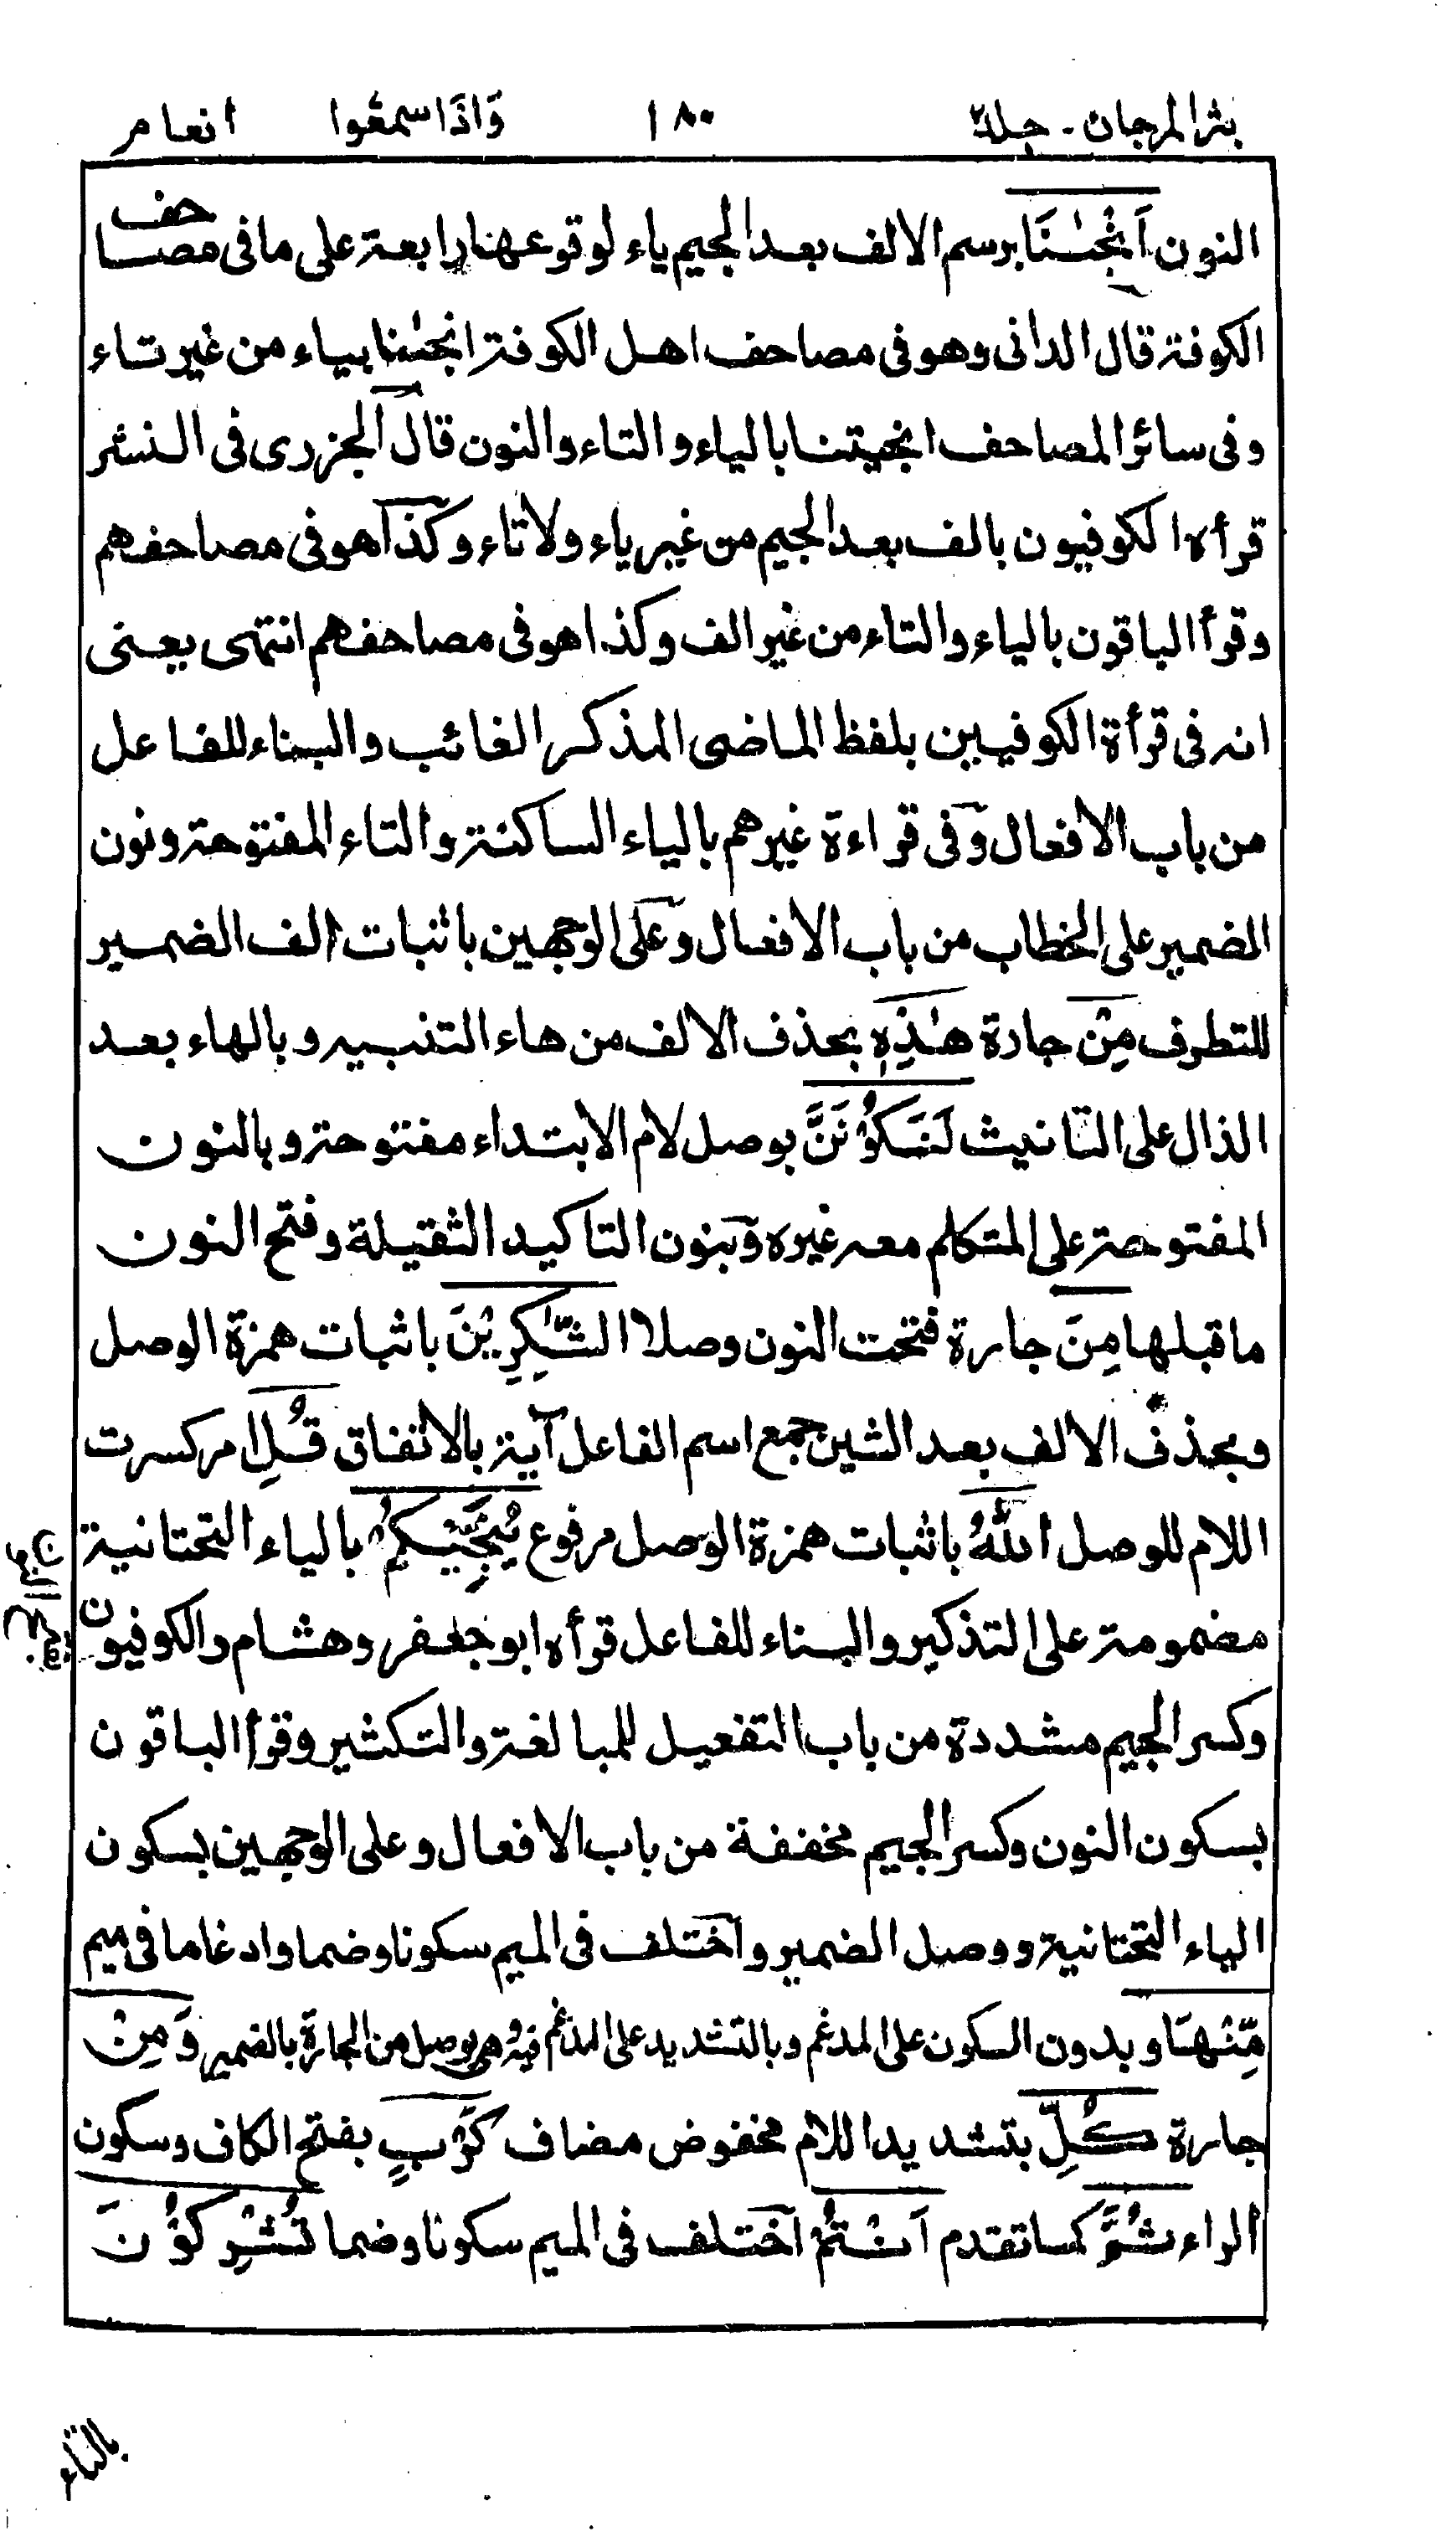 نثر المرجان - جلد٢ ١٨٠ وَاِذَا سمعُوا انعام
النون اَنْجٰىنَا برسم الالف بعد الجيم ياء لوقوعها رابعة على ما فى مصاحف
الكوفة قال الدانى وهو فى مصاحف اهل الكوفة انجىٰنا بياء من غير تاء
وفى سائر المصاحف انجيتنا بالياء والتاء والنون قال الجزرى فى النشر
قرأه الكوفيون بالف بعد الجيم من غير ياء ولا تاء وكذا هو فى مصاحفهم
وقرأ الباقون بالياء والتاء من غير الف وكذا هو فى مصاحفهم انتهى يعنى
انه فى قرأة الكوفيين بلفظ الماضى المذكر الغائب والبناء للفاعل
من باب الافعال وفى قراءة غيرهم بالياء الساكنة والتاء المفتوحة ونون
الضمير على الخطاب من باب الافعال وعلى الوجهين باثبات الف الضمير
للتطرف مِنْ جارة هٰذِهٖ بحذف الالف من هاء التنبيه وبالهاء بعد
الذال على التانيث لَنَكُوْنَنَّ بوصل لام الابتداء مفتوحة وبالنون
المفتوحة على المتكلم معه غيره وبنون التاكيد الثقيلة وفتح النون
ما قبلها مِنَ جارة فتحت النون وصلا الشّٰكِرِيْنَ باثبات همزة الوصل
وبحذف الالف بعد الشين جمع اسم الفاعل آية بالاتفاق قُلِ امر كسرت
اللام للوصل اللّٰهُ باثبات همزة الوصل مرفوع يُنَجِّيْكُمْ بالياء التحتانية
مضمومة على التذكير والبناء للفاعل قرأه ابو جعفر وهشام والكوفيون
بفتح النون
وكسر الجيم مشددة من باب التفعيل للمبالغة والتكثير وقرأ الباقون
بسكون النون وكسر الجيم مخففة من باب الافعال وعلى الوجهين بسكون
الياء التحتانية ووصل الضمير واختلف فى الميم سكونا وضما وادغاما فى ميم
مِّنْهَا وبدون السكون على المدغم وبالتشديد على المدغم فيه وهو بوصل من الجارة بالضمير وَمِنْ
جارة كُلِّ بتشديد اللام مخفوض مضاف كَرْبٍ بفتح الكاف وسكون
الراء ثُمَّ كما تقدم اَنْتُمْ اختلف فى الميم سكونا وضما تُشْرِكُوْنَ
بالتاء